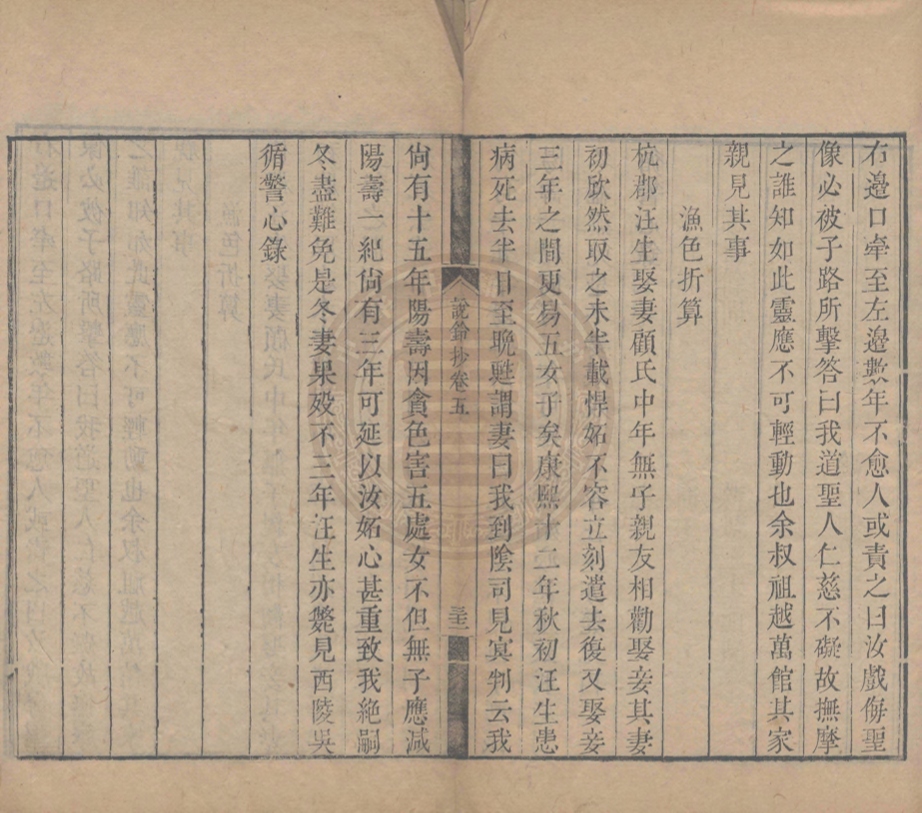 右邊口牽至左邊數年不愈人或責之曰汝戲侮聖
像必被子路所擊答曰我道聖人仁慈不礙故撫摩
之誰知如此靈應不可輕動也余叔祖越萬館其家
親見其事
漁色折算
杭郡汪生娶妻顧氏中年無子親友相勸娶妾其妻
初欣然取之未半載悍妬不容立刻遣去復又娶妾
三年之間更易五女子矣康熙十二年秋初汪生患
病死去半日至晩甦謂妻曰我到陰司見冥判云我
說鈴抄卷五
三三
尙有十五年陽壽因貪色害五處女不但無子應減
陽壽一紀尙有三年可延以汝妬心甚重致我絶嗣
冬盡難免是冬妻果歿不三年汪生亦斃見西陵吳
循警心錄